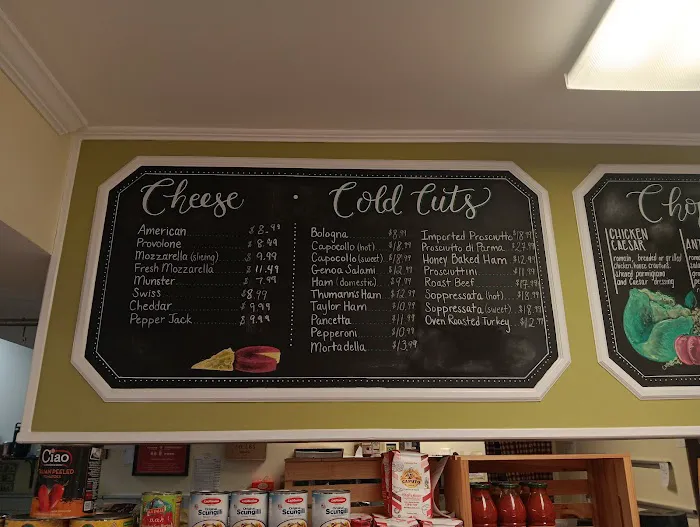 Cheese · Cold Cuts
American $8.99
Provolone $8.99
Mozzarella (slicing) $9.99
Fresh Mozzarella $11.99
Munster $7.99
Swiss $8.99
Cheddar $9.99
Pepper Jack $9.99
Bologna $8.99
Capocollo (hot) $18.99
Capocollo (sweet) $18.99
Genoa Salami $12.99
Ham (domestic) $9.99
Thumann's Ham $12.99
Taylor Ham $10.99
Pancetta $11.99
Pepperoni $10.99
Mortadella $13.99
Imported Prosciutto $18.99
Prosciutto di Parma $27.99
Honey Baked Ham $12.99
Prosciuttini $11.99
Roast Beef $17.99
Soppressata (hot) $18.99
Soppressata (sweet) $18.99
Oven Roasted Turkey $12.99
Cho
CHICKEN
CAESAR
romain, breaded or grilled
chicken, house croutons,
shaved parmigiano
and Caesar dressing
Ciao
Scungilli
Scungilli
Scungilli
Scungilli
CAPUTO